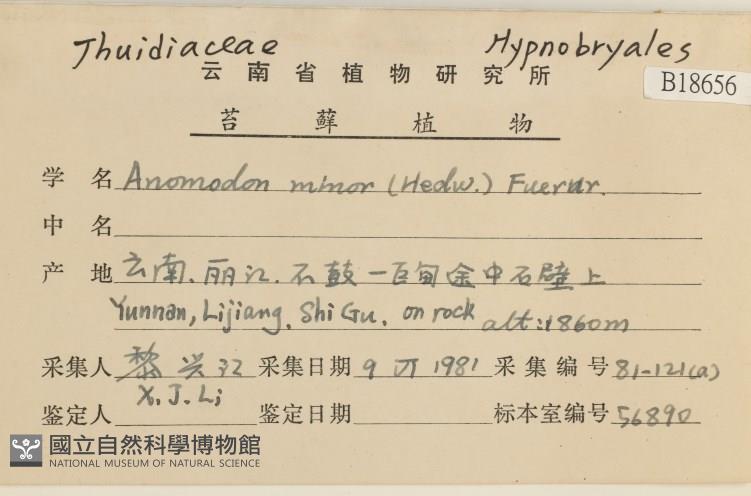 Thuidiaceae Hypnobryales
云南省植物研究所
B18656
苔藓植物
学名 Anomodon minor (Hedw.) Fuernr.
中名
产地 云南.丽江.石鼓一巨甸途中石壁上
Yunnan, Lijiang. Shi Gu. on rock alt: 1860m
采集人 黎兴江 采集日期 9 VI 1981 采集编号 81-121(a)
X. J. Li
鉴定人 鉴定日期 标本室编号 56890
國立自然科學博物館
NATIONAL MUSEUM OF NATURAL SCIENCE